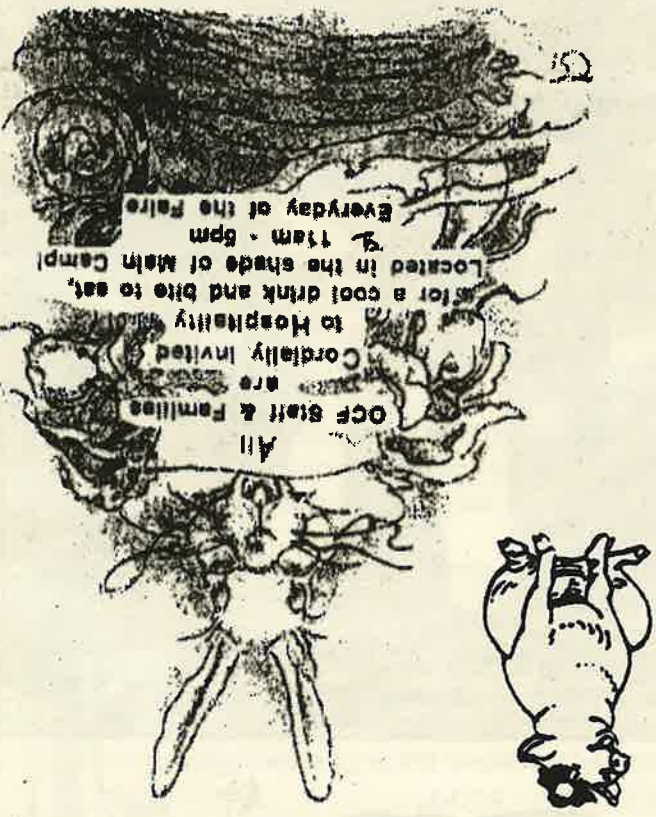 All
OCF Staff & Families
are
Cordially Invited
to Hospitality
for a cool drink and bite to eat,
Located in the shade of Main Camp!
11am - 5pm
Everyday of the Faire